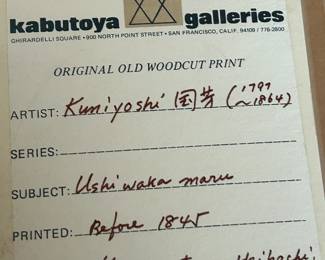 kabutoya galleries
GHIRARDELLI SQUARE • 900 NORTH POINT STREET • SAN FRANCISCO, CALIF. 94109 / 776-2800
ORIGINAL OLD WOODCUT PRINT
ARTIST: Kuniyoshi 国芳 (1797 ~1864)
SERIES:
SUBJECT: Ushiwaka maru
PRINTED: Before 1845